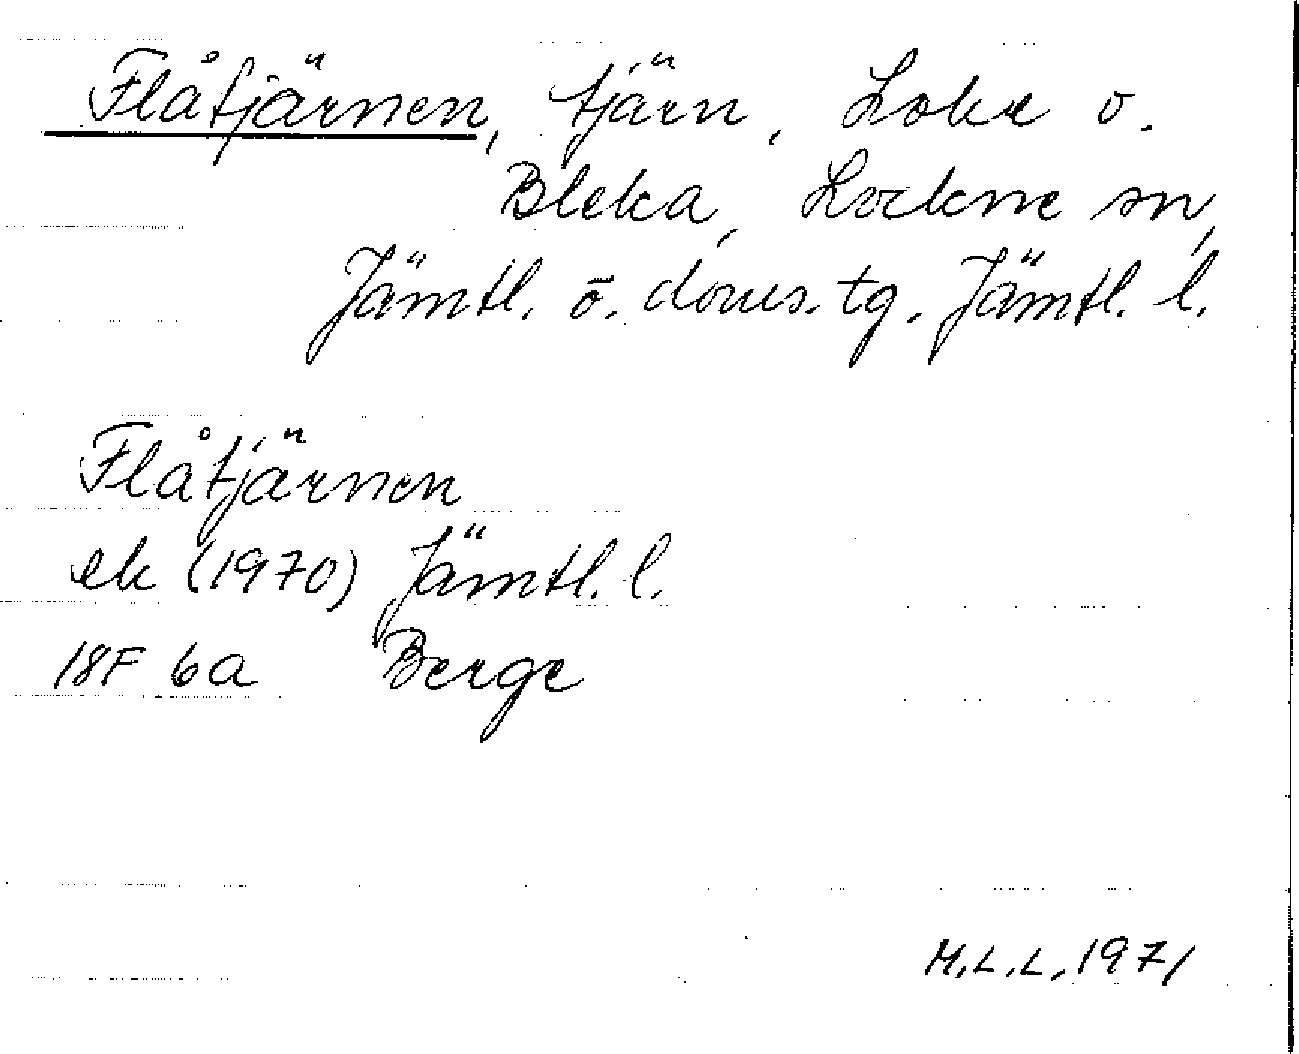 Flåtjärnen, tjärn, Loke o.
Bleka, Lockne sn,
Jämtl. ö. doms. tg. Jämtl. l.
Flåtjärnen
ek (1970) Jämtl. l.
18F 6a Berge
M.L.L. 1971